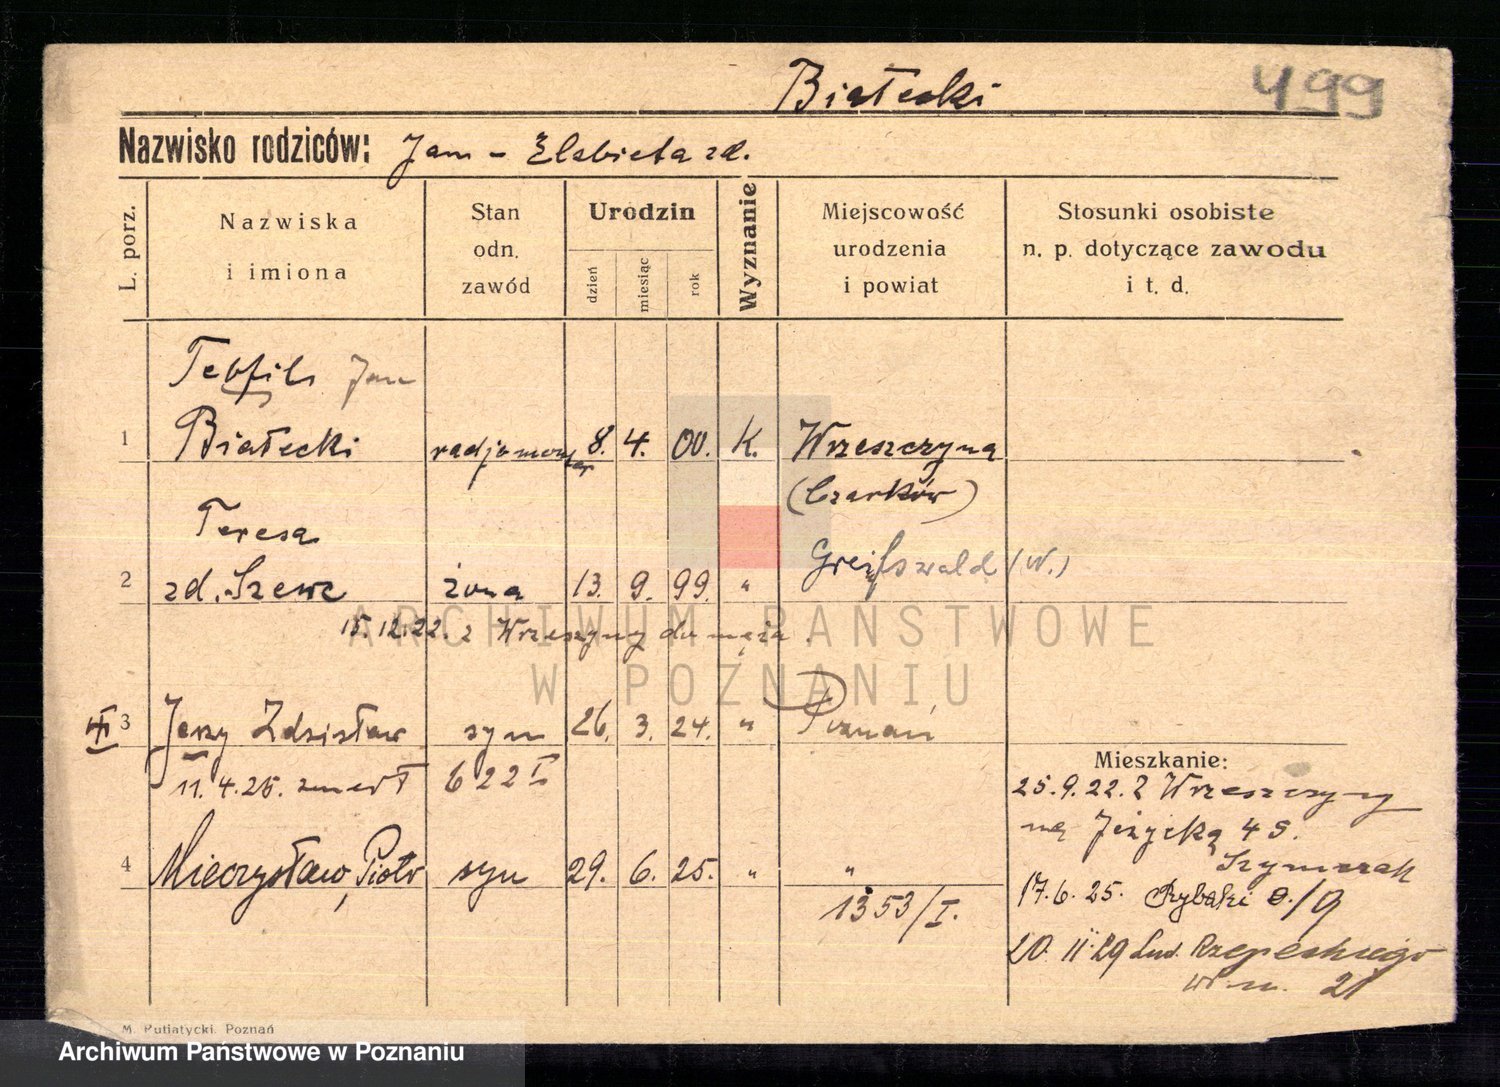 Białecki
499
Nazwisko rodziców: Jan - Elżbieta zd.
L. porz.
Nazwiska
i imiona
Stan
odn.
zawód
Urodzin
dzień
miesiąc
rok
Wyznanie
Miejscowość
urodzenia
i powiat
Stosunki osobiste
n. p. dotyczące zawodu
i t. d.
Teofil Jan
1 Białecki radjomonter 8. 4. 00. K. Wrzeszczyna
(Czarków)
Teresa
Greifswald (N.)
2 zd. Szewc żona 13. 9. 99. "
15.12.22. z Wrzeszyny do męża.
3 Jerzy Zdzisław syn 26. 3. 24. " Poznań
11.4.25. zmarł 622 I
4 Mieczysław, Piotr syn 29. 6. 25. " "
1353/I.
Mieszkanie:
25.9.22. z Wrzeszczyny
na Jeżycką 45.
Szymczak
17.6.25. Rybaki 8./9
20 II 29 Lud. Rzepeckiego
w m. 21
M. Putiatycki. Poznań
ARCHIWUM PAŃSTWOWE
W POZNANIU
Archiwum Państwowe w Poznaniu